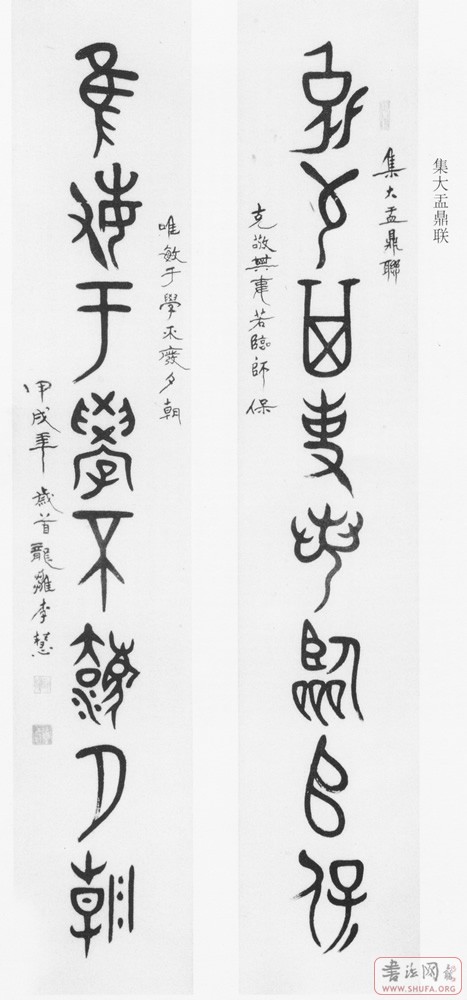 集大盂鼎联
集大盂鼎聯
若臨𠂤保
克敬無若臨師保
隹敏于學不灋夕朝
唯敏于學不廢夕朝
甲戌年歲首龍雛李慧
書法网
WWW.SHUFA.ORG